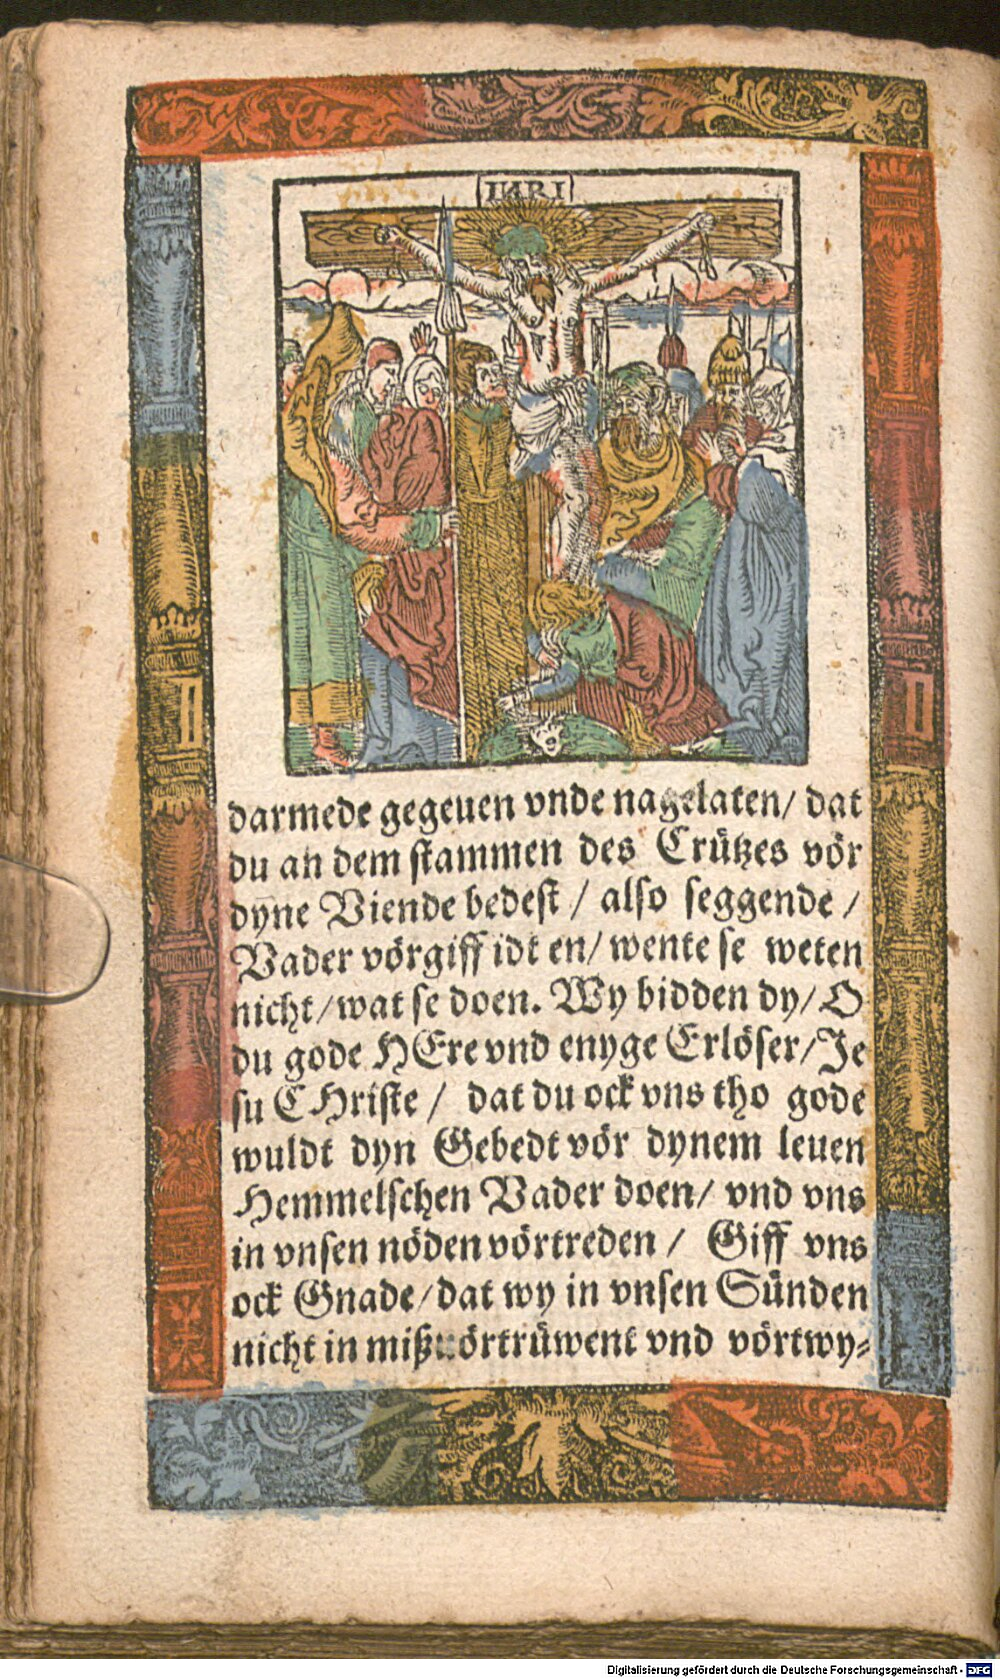 INRI
darmede gegeuen vnde nagelaten/ dat
du an dem stammen des Crützes vör
dyne Viende bedest / also seggende /
Vader vörgiff idt en/ wente se weten
nicht/wat se doen. Wy bidden dy/ O
du gode HEre vnd enyge Erlöser/Je
su CHriste / dat du ock vns tho gode
wuldt dyn Gebedt vör dynem leuen
Hemmelschen Vader doen/ vnd vns
in vnsen nöden vörtreden / Giff vns
ock Gnade/dat wy in vnsen Sünden
nicht in mißvörtrüwent vnd vörtwy⸗
Digitalisierung gefördert durch die Deutsche Forschungsgemeinschaft - DFG